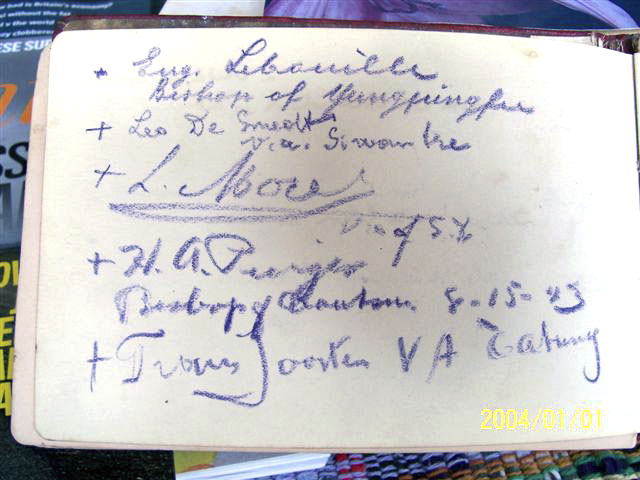 + Eug. Lebouille
Bishop of Yungpingfu
+ Leo De Smedt
V.A. Siwantze
+ L. Morel
V of S.
+ H. A. Pinger
Bishop of Chowtsun 8-15-43
+ Frans Joosten VA Tatung
2004/01/01
ESE SU